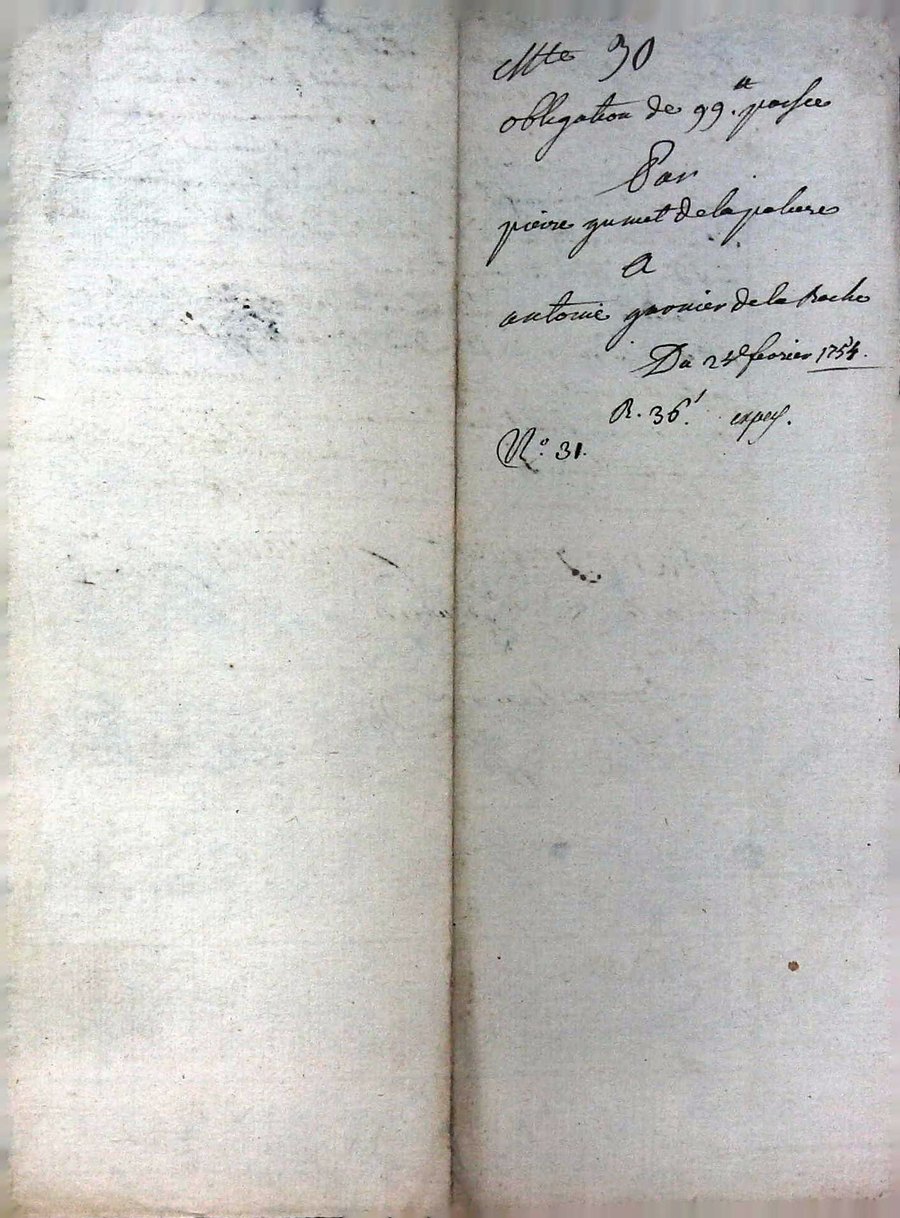 Mte 30
obligation de 99.tt passée
Par
pierre gumet de la palure
A
antoine garnier de la Roche
Du 24e fevrier 1754.
R. 36.' expéé.
N.° 31.